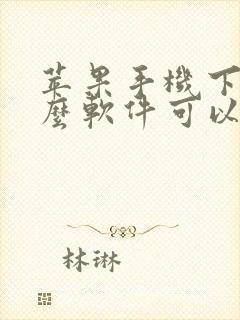 苹果手機下
麼軟件可以
林琳